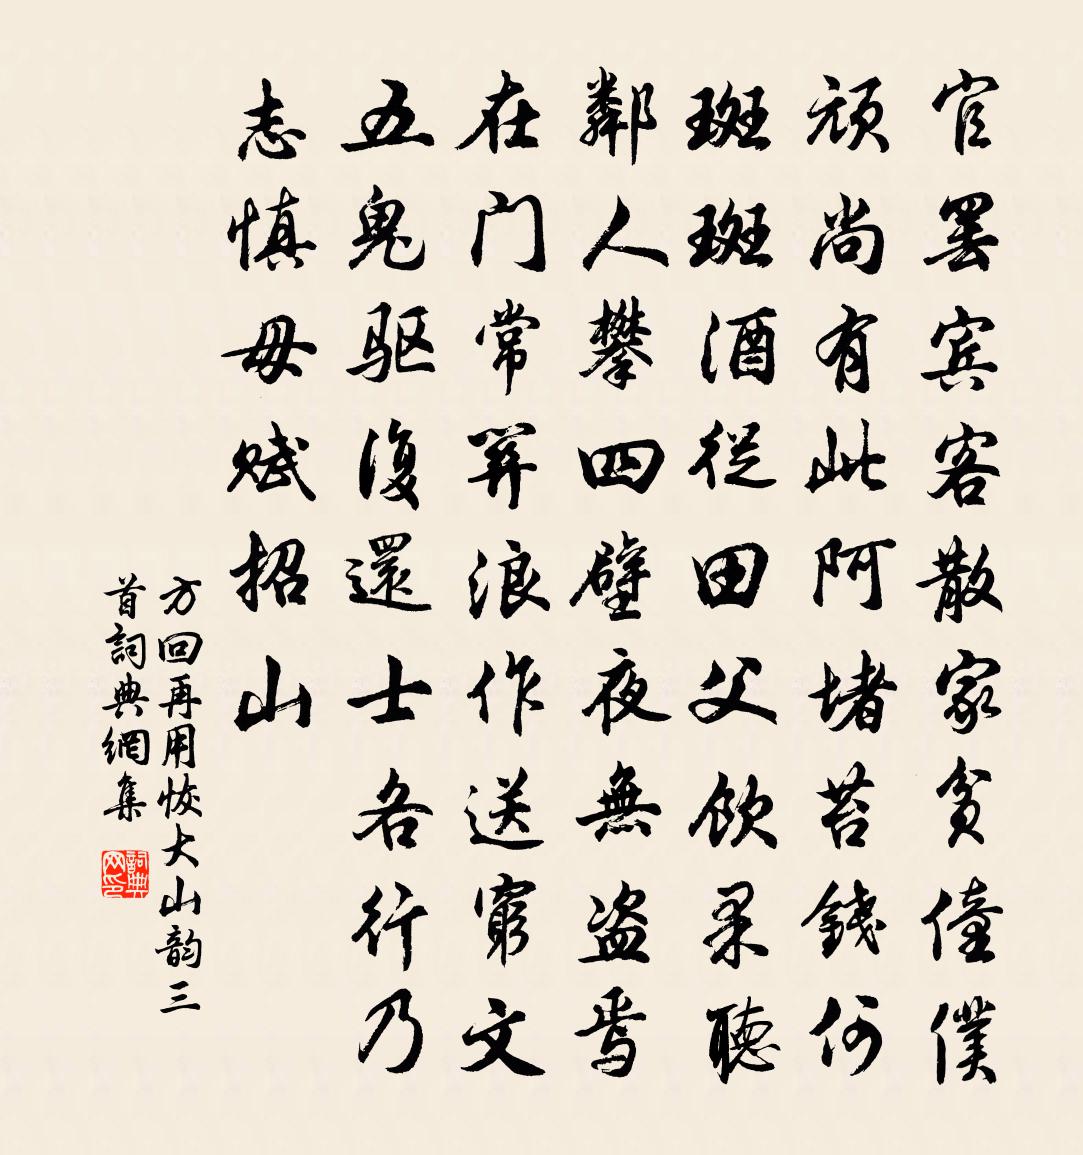 官罢宾客散家贫僮僕
顽尚有此阿堵苔錢何
斑斑酒從田父飲果聽
鄰人攀四壁夜無盗焉
在门常関浪作送窮文
五鬼驱復還士各行乃
志慎毋赋招山
方回再用恢大山韵三
首詞典網集
詞典网印